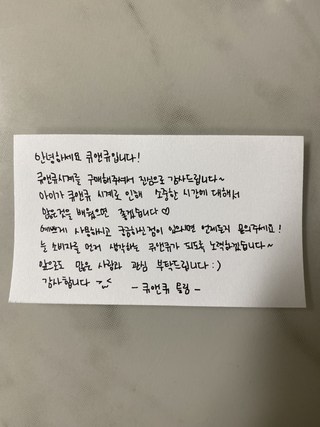 안녕하세요 큐앤큐입니다!
큐앤큐시계를 구매해주셔서 진심으로 감사드립니다~
아이가 큐앤큐 시계로 인해 소중한 시간에 대해서
많은것을 배웠으면 좋겠습니다♡
예쁘게 사용하시고 궁금하신점이 있으시면 언제든지 문의주세요!
늘 소비자를 먼저 생각하는 큐앤큐가 되도록 노력하겠습니다~
앞으로도 많은 사랑과 관심 부탁드립니다 :)
감사합니다
- 큐앤큐 올림 -